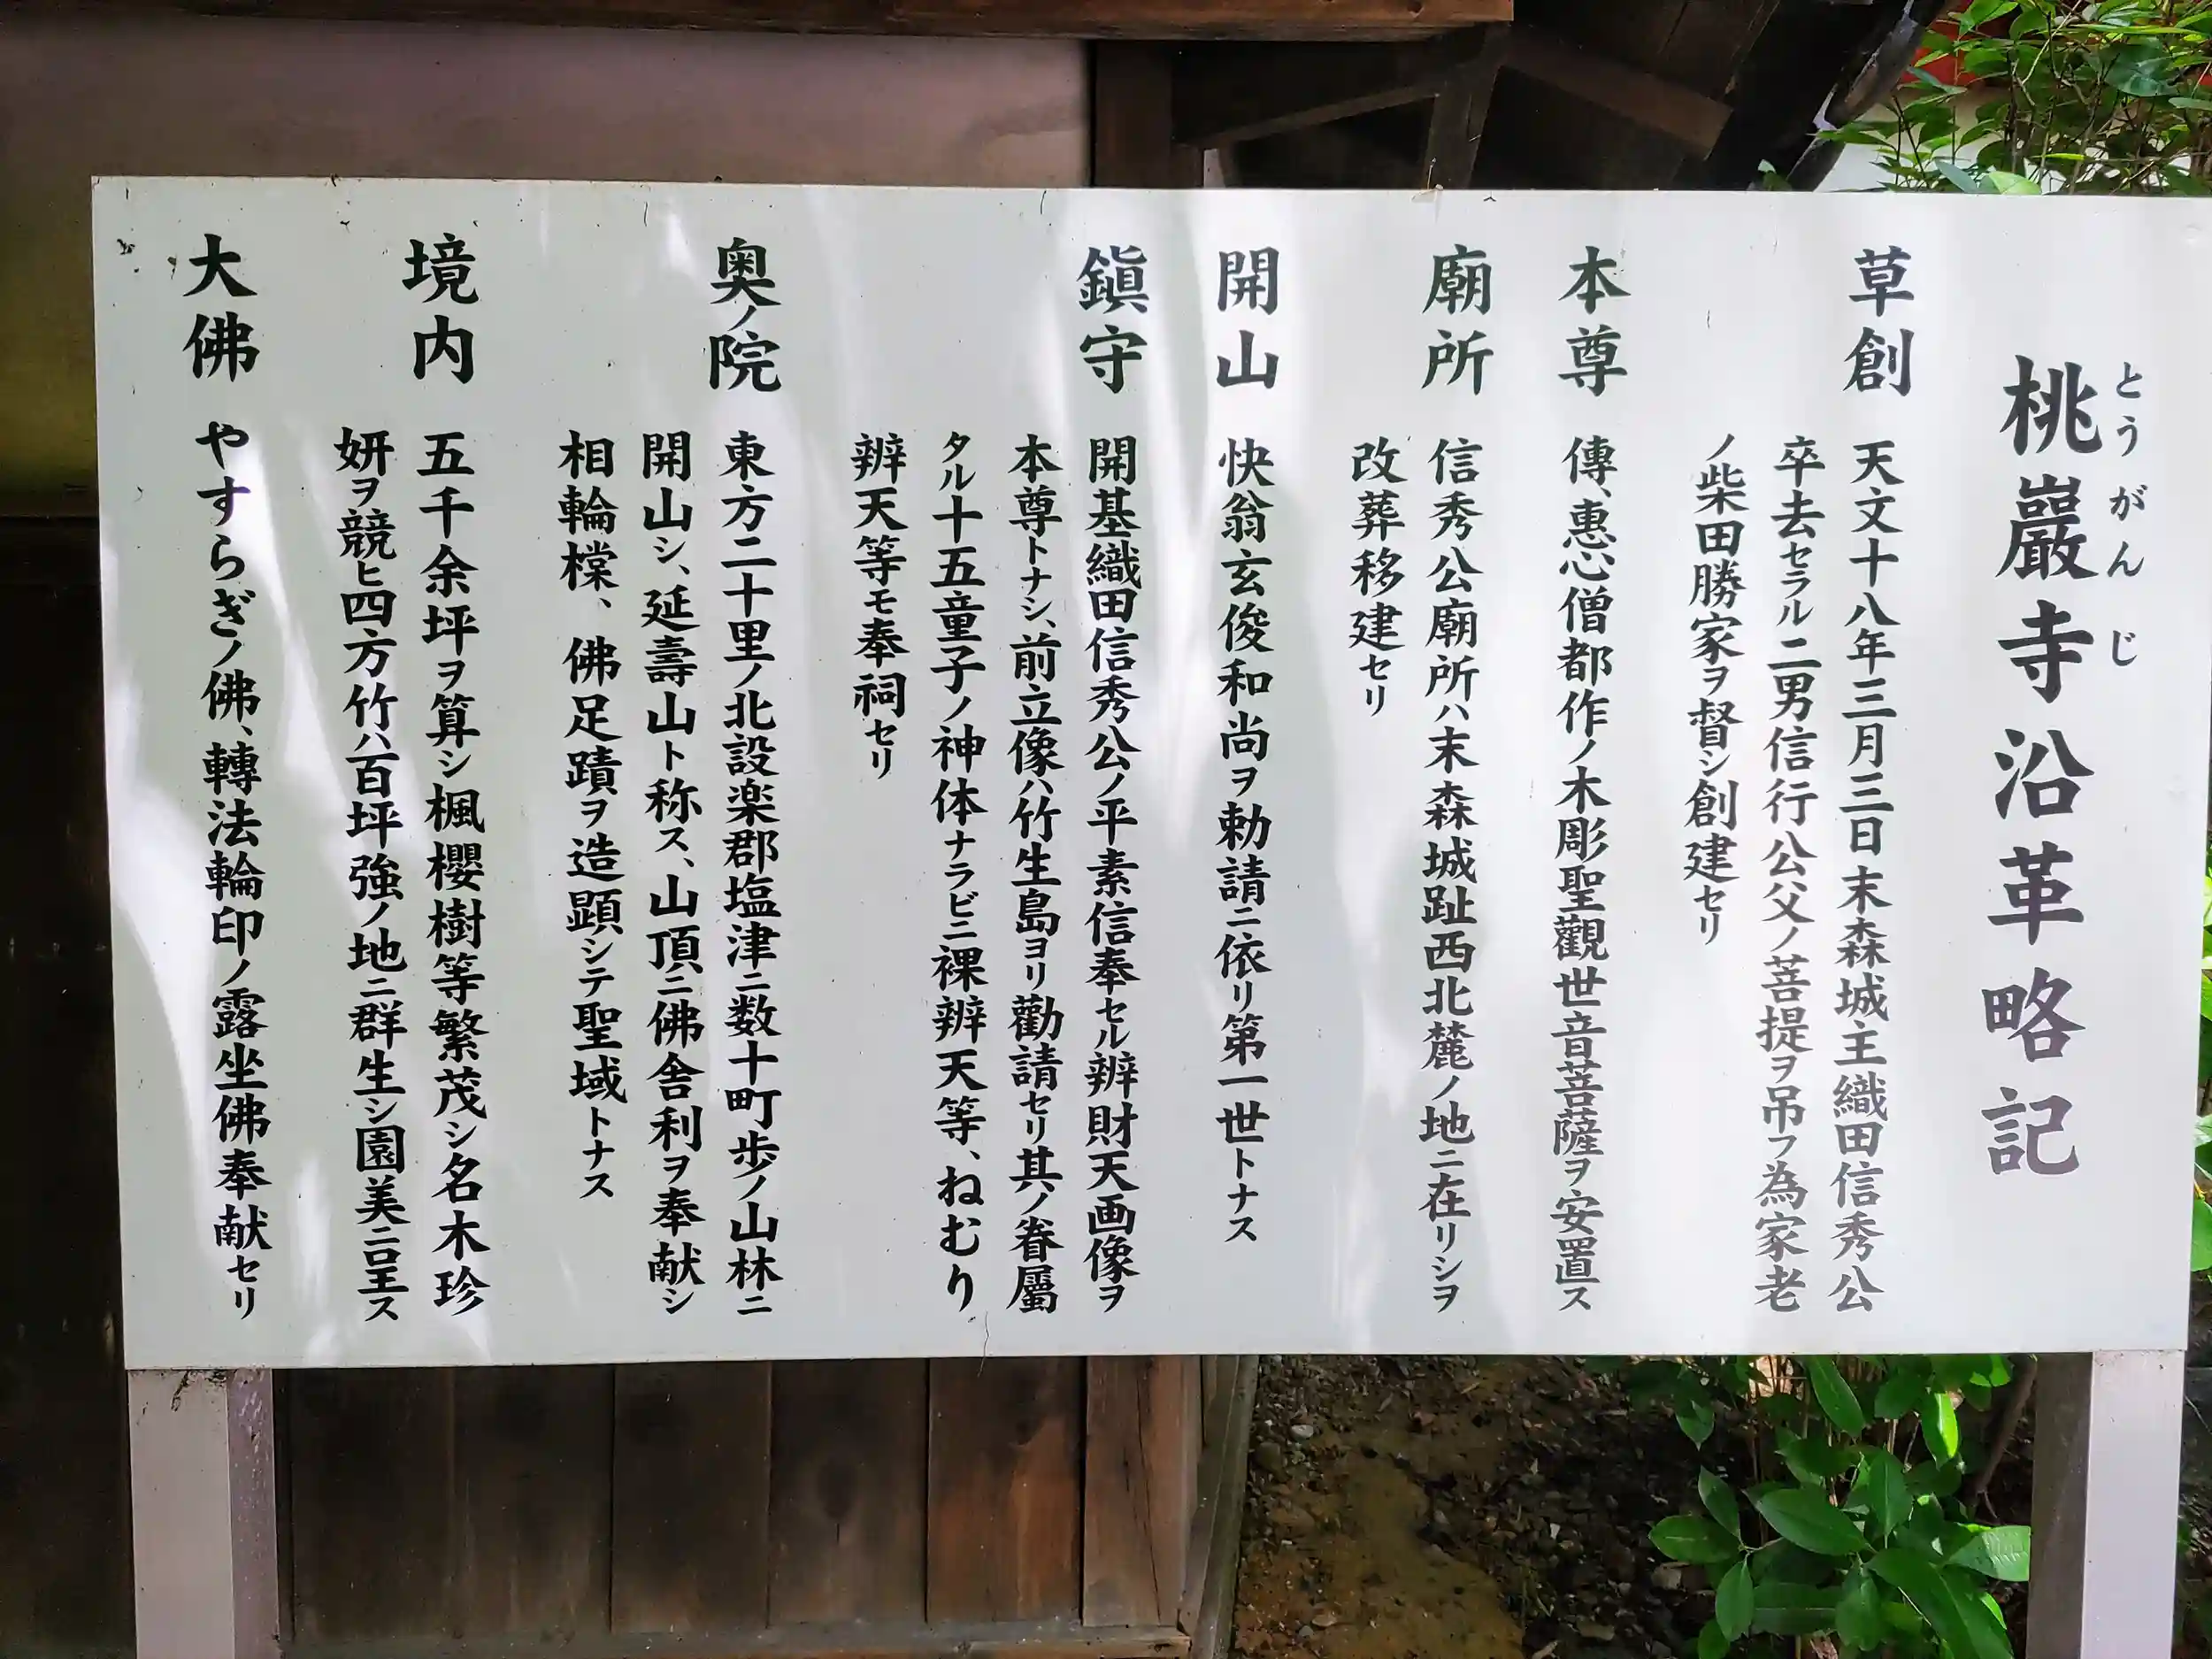 桃巖寺沿革略記
とうがんじ
草創 天文十八年三月三日末森城主織田信秀公
卒去セラル二男信行公父ノ菩提ヲ吊フ為家老
ノ柴田勝家ヲ督シ創建セリ
本尊 傳、惠心僧都作ノ木彫聖觀世音菩薩ヲ安置ス
廟所 信秀公廟所ハ末森城趾西北麓ノ地ニ在リシヲ
改葬移建セリ
開山 快翁玄俊和尚ヲ勅請ニ依リ第一世トナス
鎭守 開基織田信秀公ノ平素信奉セル辨財天画像ヲ
本尊トナシ、前立像ハ竹生島ヨリ勸請セリ其ノ眷屬
タル十五童子ノ神体ナラビニ裸辨天等、ねむり
辨天等モ奉祠セリ
奥ノ院 東方二十里ノ北設楽郡塩津ニ数十町歩ノ山林ニ
開山シ、延壽山ト称ス、山頂ニ佛舎利ヲ奉献シ
相輪橖、佛足蹟ヲ造顕シテ聖域トナス
境内 五千余坪ヲ算シ楓櫻樹等繁茂シ名木珍
妍ヲ競ヒ四方竹ハ百坪強ノ地ニ群生シ園美ニ呈ス
大佛 やすらぎノ佛、轉法輪印ノ露坐佛奉献セリ